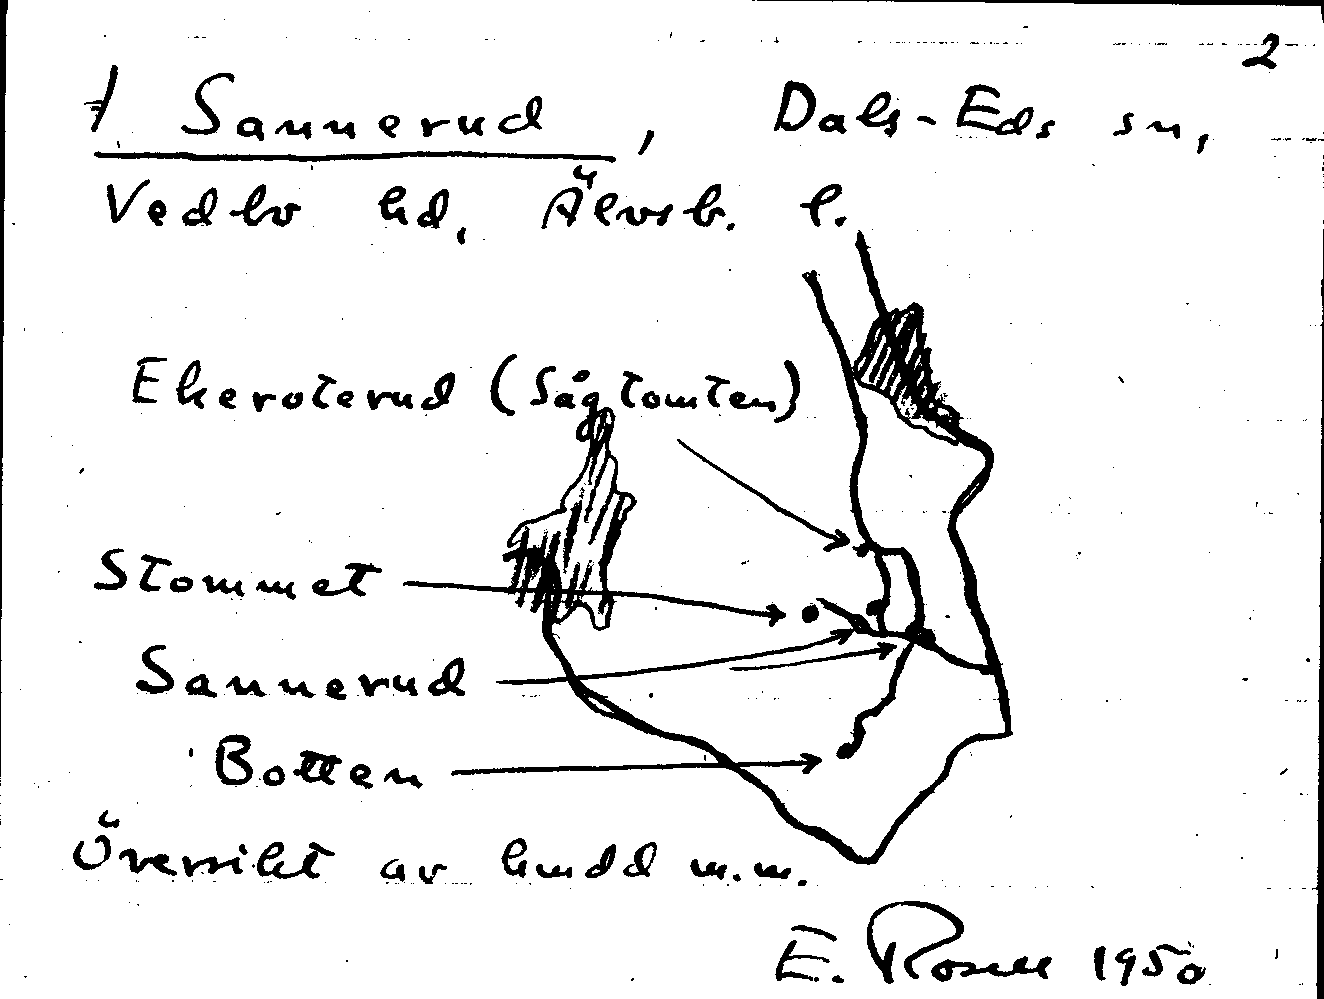 2
1 Sannerud, Dals-Eds sn,
Vedbo hd, Älvsb. l.
Ekeroterud (Sågtomten)
Stommet
Sannerud
Botten
Översikt av hmdd m.m.
E. Rosell 1950